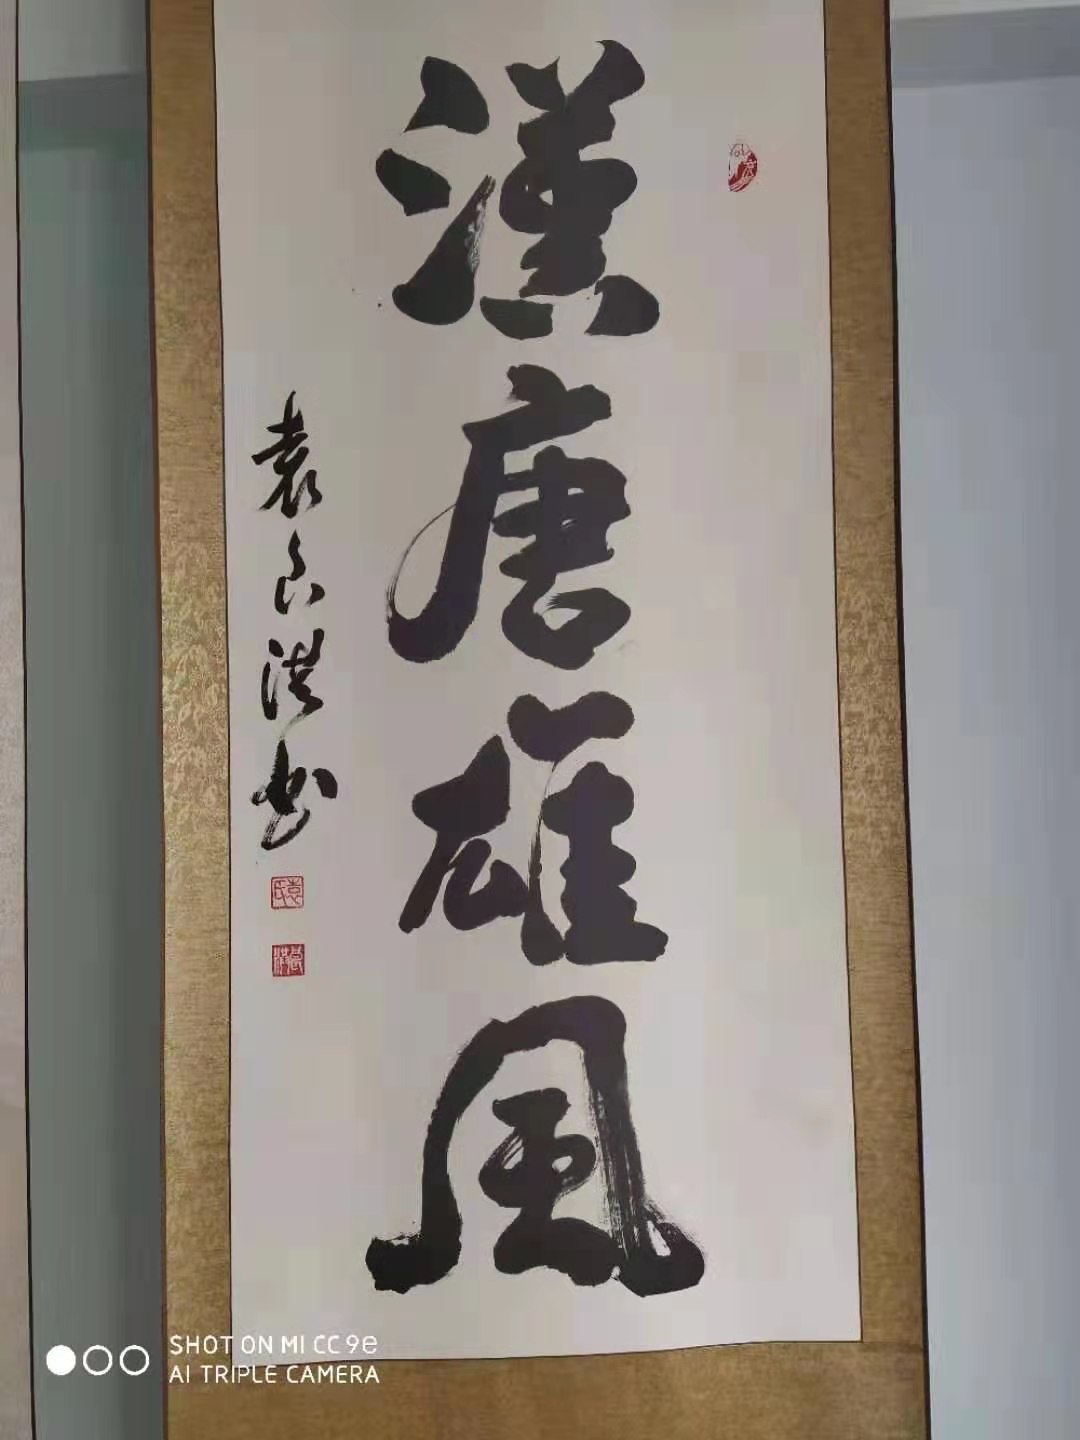 漢唐雄風
袁良洪书
袁氏
SHOT ON MI CC 9e
AI TRIPLE CAMERA